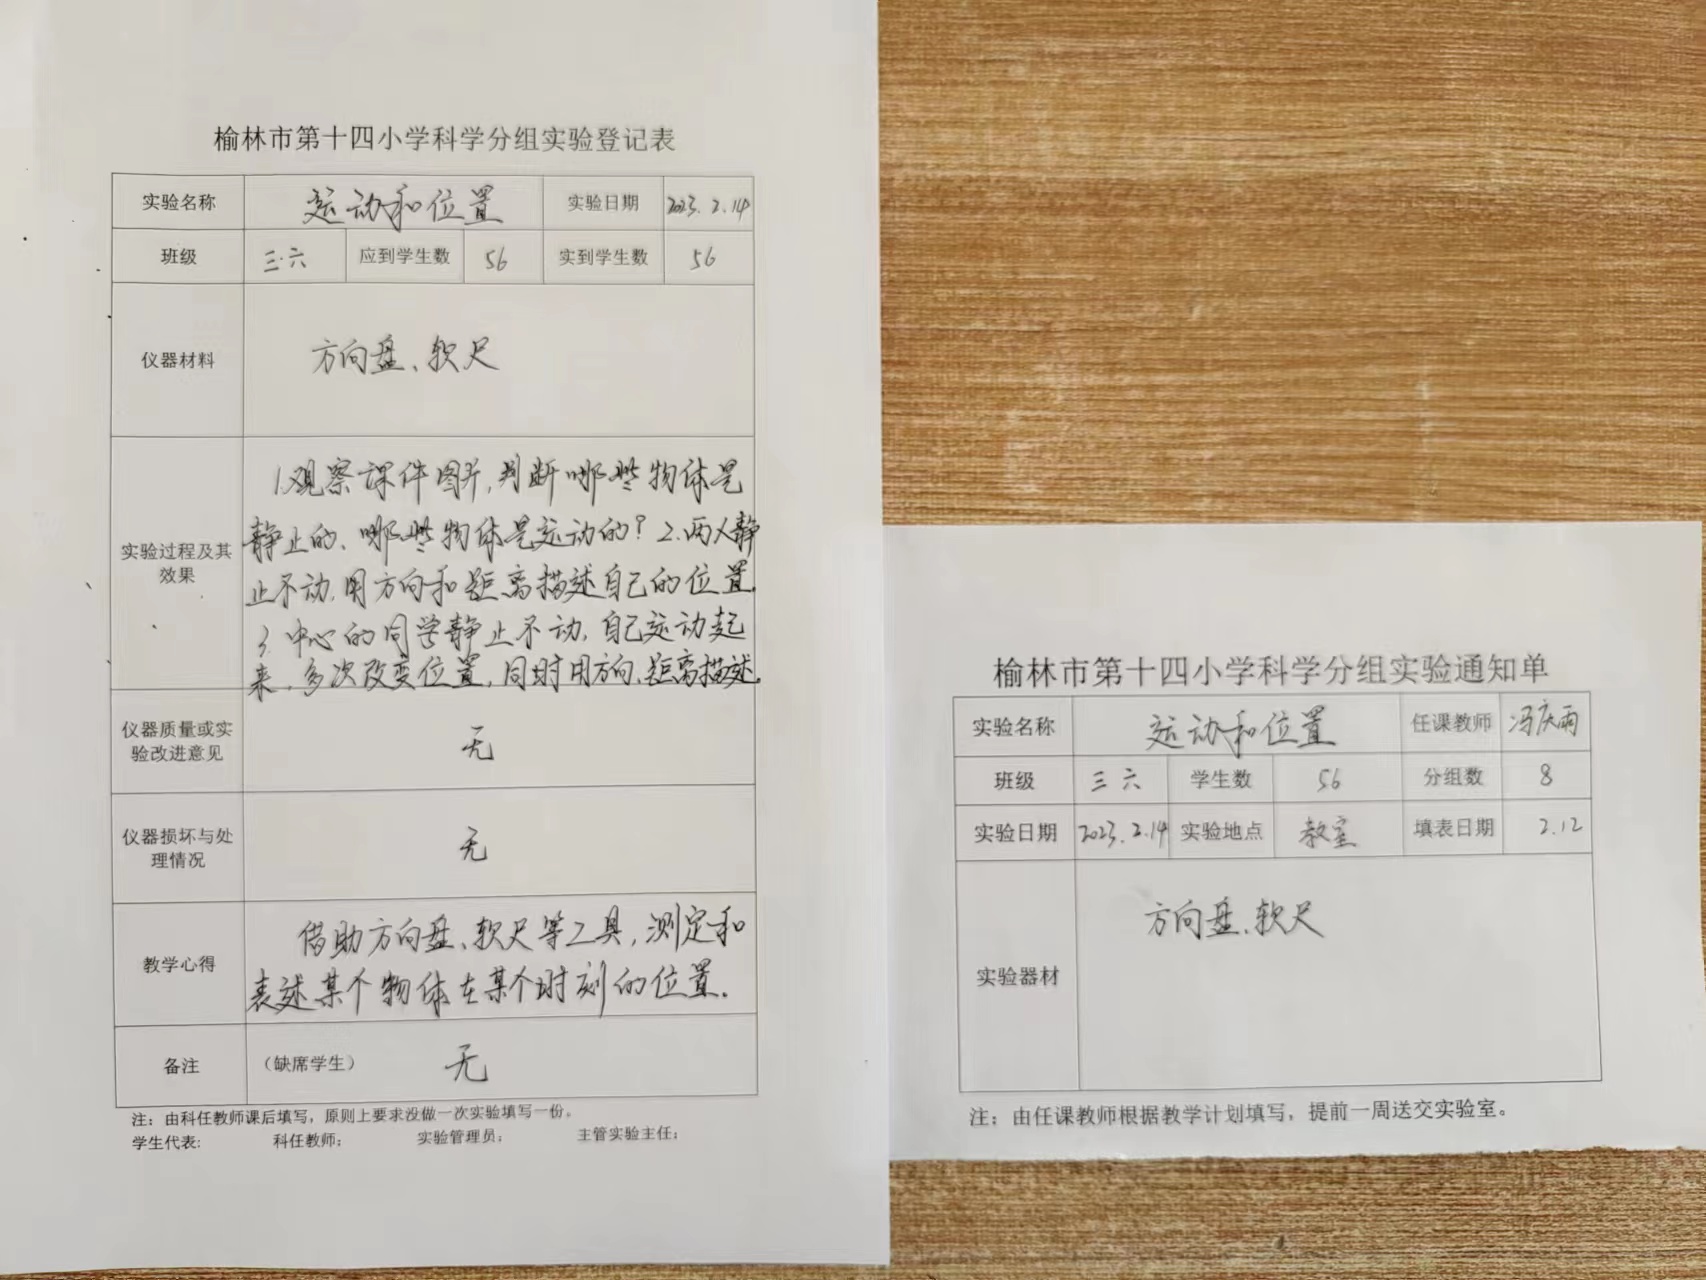 榆林市第十四小学科学分组实验登记表
实验名称 运动和位置 实验日期 2023.2.14
班级 三.六 应到学生数 56 实到学生数 56
仪器材料 方向盘、软尺
实验过程及其
效果
1.观察课件图片,判断哪些物体是
静止的、哪些物体是运动的?2.两人静
止不动,用方向和距离描述自己的位置.
3.中心的同学静止不动,自己运动起
来,多次改变位置,同时用方向、距离描述.
仪器质量或实
验改进意见
无
仪器损坏与处
理情况
无
教学心得
借助方向盘、软尺等工具,测定和
表述某个物体在某个时刻的位置.
备注 (缺席学生) 无
注:由科任教师课后填写,原则上要求没做一次实验填写一份。
学生代表: 科任教师: 实验管理员: 主管实验主任:
榆林市第十四小学科学分组实验通知单
实验名称 运动和位置 任课教师 冯庆雨
班级 三 六 学生数 56 分组数 8
实验日期 2023.2.14 实验地点 教室 填表日期 2.12
实验器材 方向盘、软尺
注:由任课教师根据教学计划填写,提前一周送交实验室。